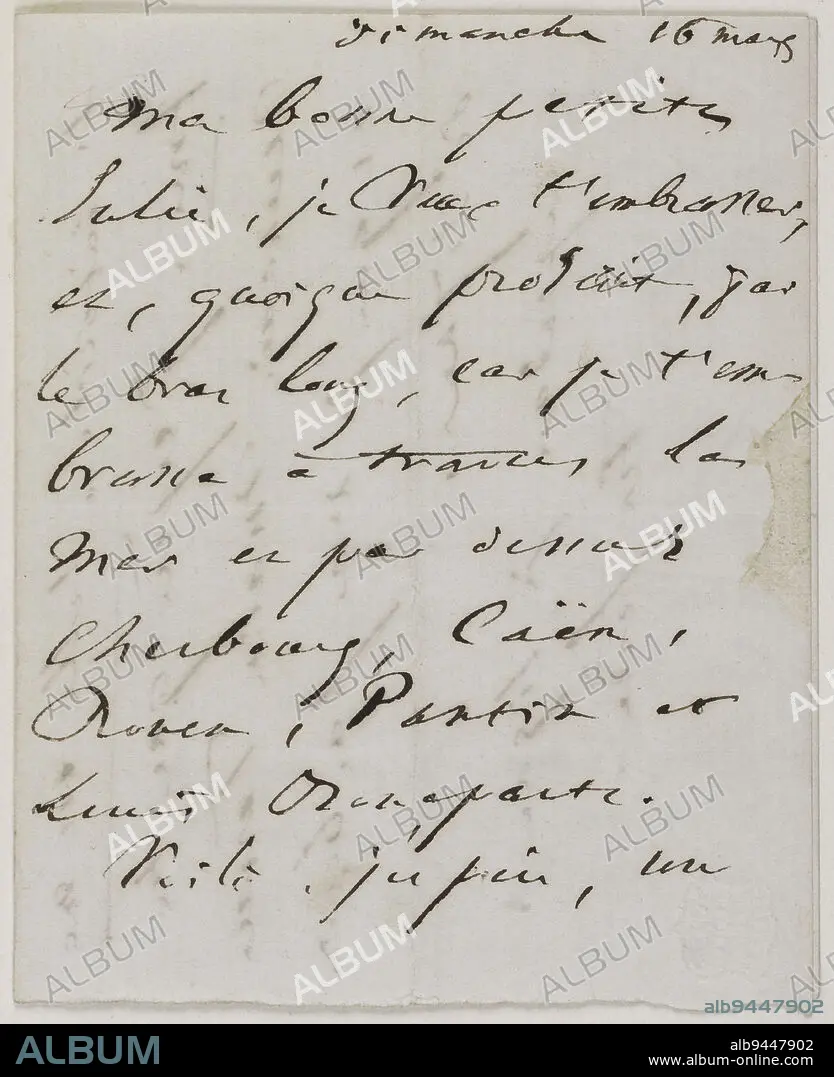 dimanche 16 mars
Ma bonne petite
Julie, je veux t'embrasser,
et, quoique proscrit, j'ai
le bras long, car je t'em
brasse à travers la
Mer et par dessus
Cherbourg, Caën,
Rouen, Pantin et
Louis Bonaparte.
Voilà, j'espère, un
alb9447902
ALBUM
alb9447902
www.album-online.com